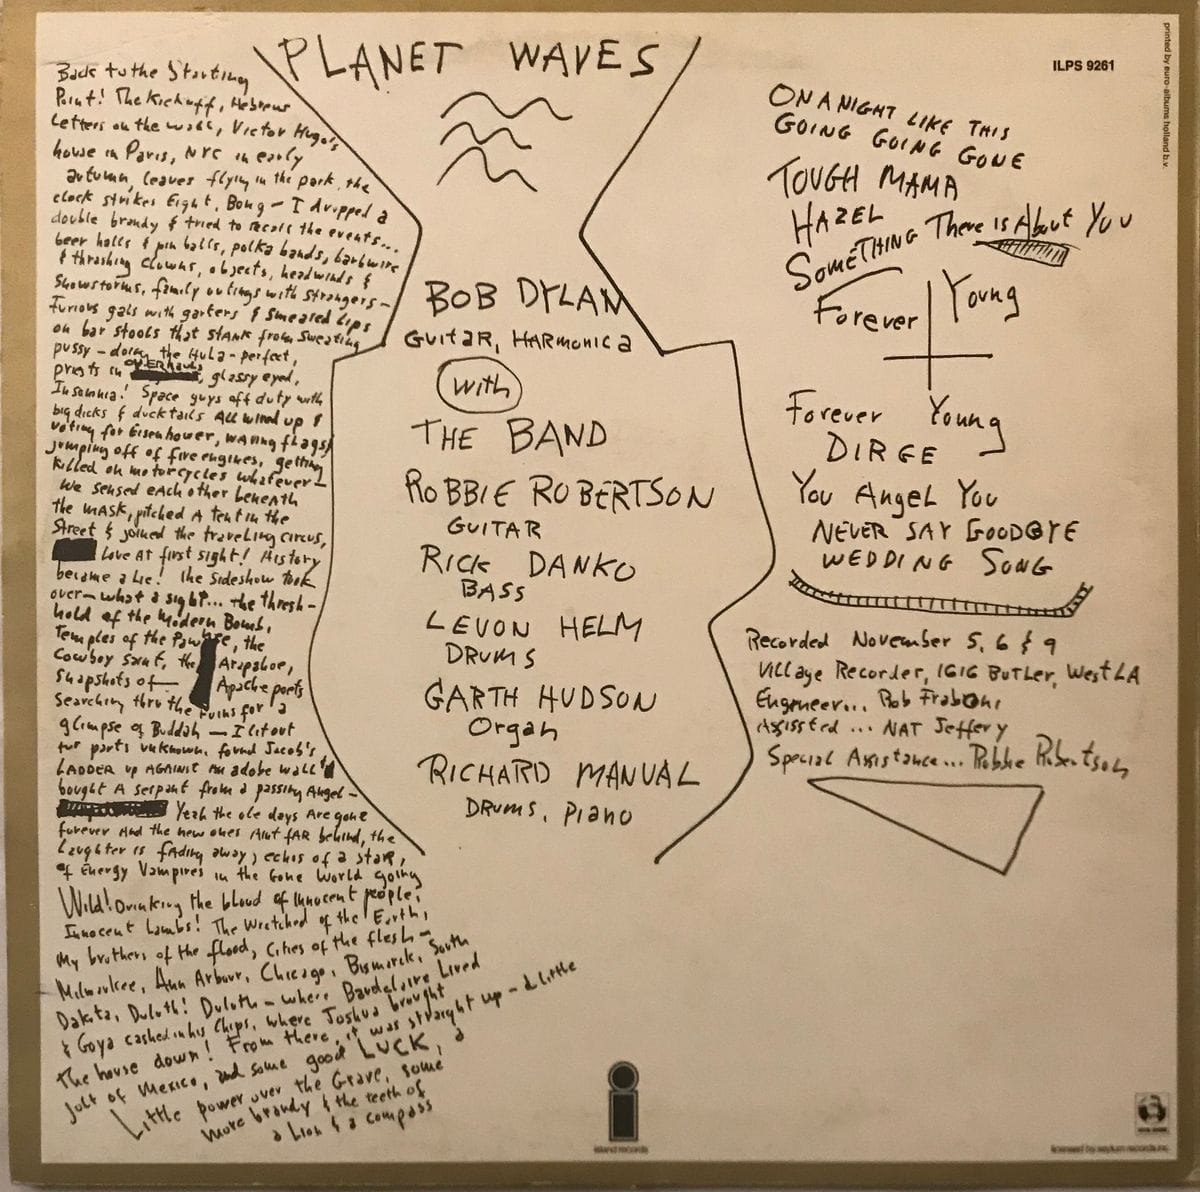 PLANET WAVES
Back to the Starting
Point! The Kickoff, Hebrew
Letters on the wall, Victor Hugo's
house in Paris, NYC in early
autumn, leaves flying in the park, the
clock strikes Eight, Bong — I dropped a
double brandy & tried to recall the events...
beer halls & pin balls, polka bands, barbwire
& thrashing clowns, objects, headwinds &
snowstorms, family outings with strangers —
Furious gals with garters & smeared lips
on bar stools that stank from sweating
pussy — doing the Hula — perfect,
priests in OVERhauls, glassy eyed,
Insomnia! Space guys off duty with
big dicks & ducktails All wired up &
voting for Eisenhower, waving flags &
jumping off of fire engines, getting
killed on motorcycles whatever —
We sensed each other beneath
the MASK, pitched A tent in the
Street & joined the traveling circus,
Love AT first sight! History
became a Lie! the sideshow took
over — what a sight... the thresh-
hold of the Modern Bomb,
Temples of the Pawnee, the
Cowboy saint, the Arapahoe,
Snapshots of Apache poets
Searching thru the ruins for a
glimpse of Buddah — I lit out
for parts unknown, found Jacob's
LADDER up AGAINST an adobe wall &
bought A serpant from a passing Angel —
Yeah the ole days Are gone
forever And the new ones Aint fAR behind, the
Laughter is fAding away, echos of a star,
of Energy Vampires in the Gone World going
Wild! Drinking the blood of innocent people,
Innocent Lambs! The Wretched of the Earth,
My brothers of the flood, Cities of the flesh —
Milwaukee, Ann Arbour, Chicago, Bismarck, South
Dakota, Duluth! Duluth — where Baudelaire Lived
& Goya cashed in his Chips, where Joshua brought
the house down! From there, it was straight up — a little
jolt of Mexico, and some good LUCK, a
Little power over the Grave, some
more brandy & the teeth of
a Lion & a compass
BOB DYLAN
GUITAR, HARMONICA
With
THE BAND
ROBBIE ROBERTSON
GUITAR
RICK DANKO
BASS
LEVON HELM
DRUMS
GARTH HUDSON
Organ
RICHARD MANUAL
DRUMS, PIANO
ILPS 9261
printed by euro-albums holland b.v.
ON A NIGHT LIKE THIS
GOING GOING GONE
TOUGH MAMA
HAZEL
SOMETHING There is About You
Forever Young
Forever Young
DIRGE
You Angel You
NEVER SAY GOODBYE
WEDDING SONG
Recorded November 5, 6 & 9
Village Recorder, 1616 BUTLER, West LA
Engineer... Rob Fraboni
Assisted ... NAT Jeffery
Special Assistance... Robbie Robertson
island records
licensed by asylum records inc.